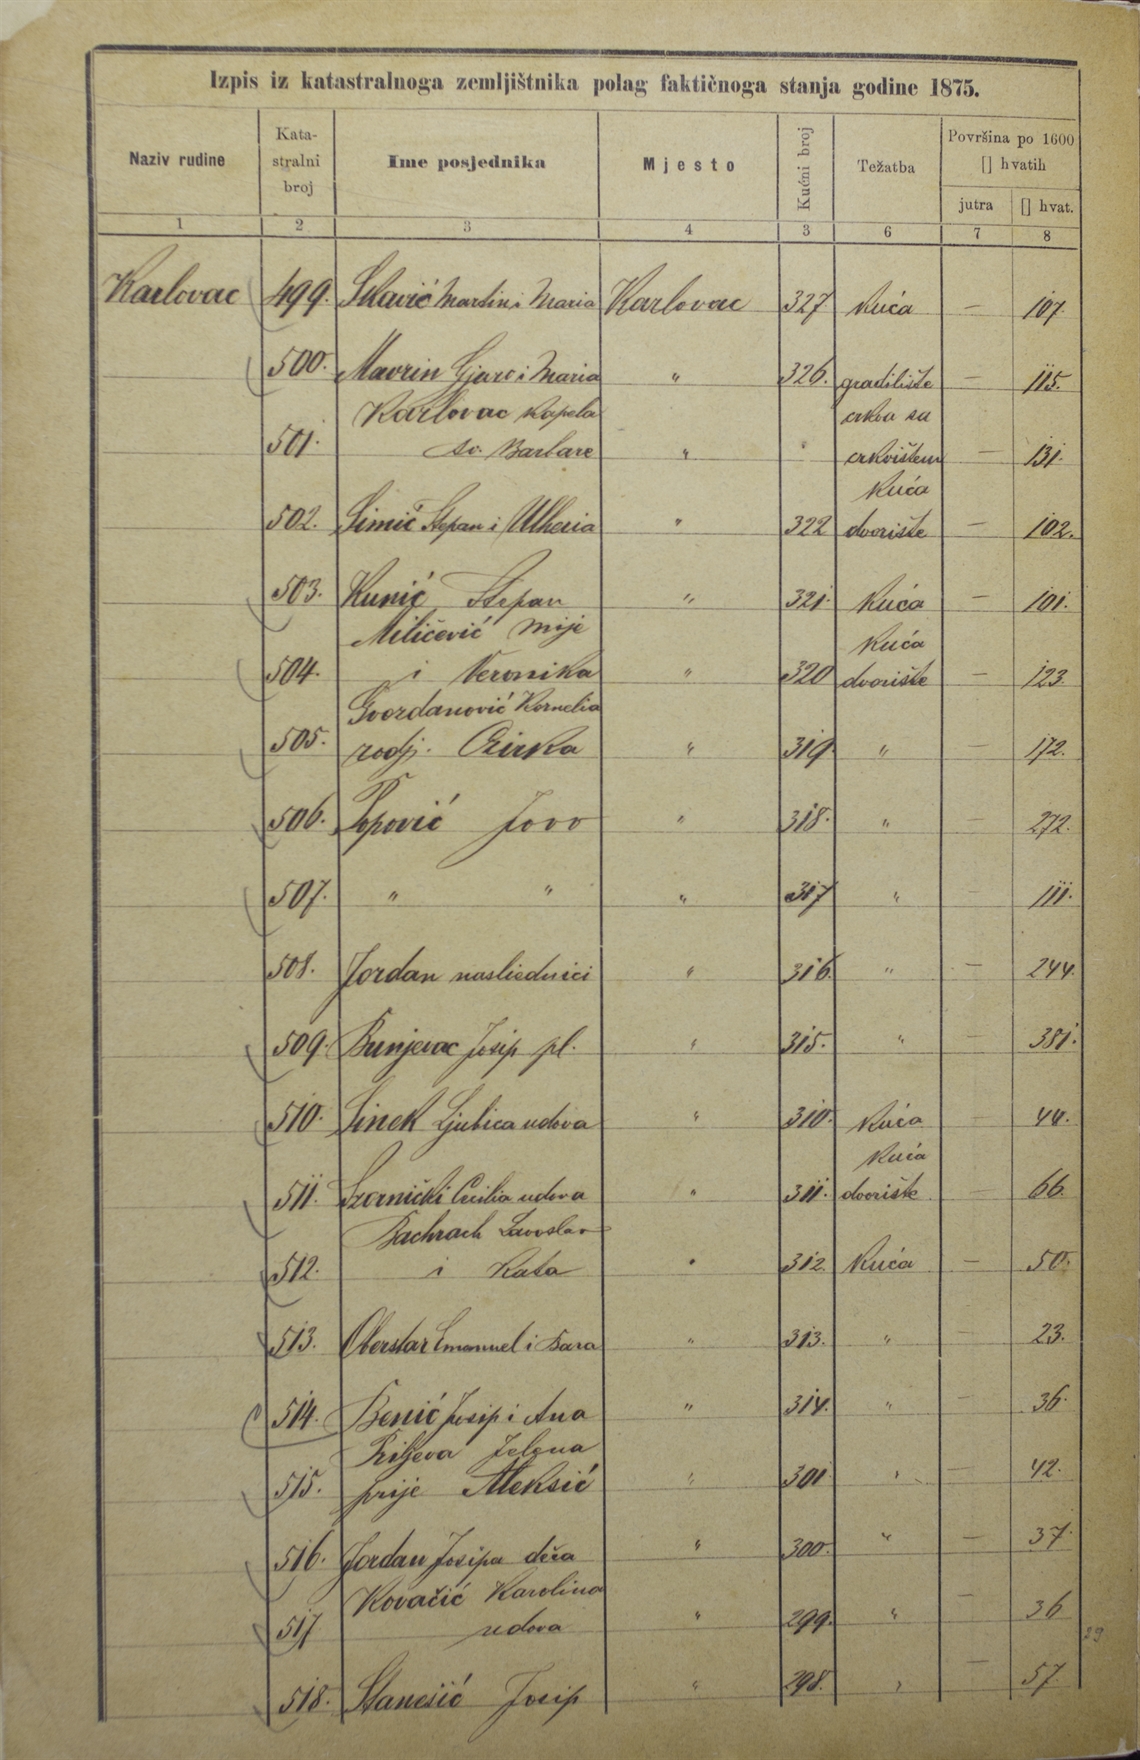 Izpis iz katastralnoga zemljištnika polag faktičnoga stanja godine 1875.
Naziv rudine Kata-stralni broj Ime posjednika Mjesto Kućni broj Težatba Površina po 1600 [] hvatih
jutra [] hvat.
1 2 3 4 3 6 7 8
Karlovac 499. Martin i Maria Karlovac 327 kuća — 107.
500. Mavrin Gjuro i Maria " 326. gradilište — 115.
Karlovac kapela crkva sa
501. sv. Barbare " crkvištem — 131.
kuća
502. Simić Stepan i " 322 dvorište — 102.
503. Kunić Stepan " 321. kuća — 101.
Miličević Mije kuća
504. i Veronika " 320 dvorište — 123
Gvozdanović Kornelia
505. rodj. " 319. " — 172.
506. Popović Jovo " 318. " 272.
507. " " " 317 " — 111.
508. Jordan nasliednici " 316. " — 244.
509. Bunjevac Josip pl. " 315. " — 381.
510. Sinek Ljubica udova " 310. kuća — 44.
kuća
511. Cecilia udova " 311. dvorište — 66.
Bachrach Lavoslav
512. i Kata " 312. kuća — 50.
513. Oberstar Emanuel i Bara " 313. " — 23.
514. Benić Josip i Ana " 314. " — 36.
Jelena
515. prije Aleksić " 301 " — 42.
516. Jordan Josipa deca " 300. " — 37.
Kovačić Karolina
517 udova " 299. " — 36
518. Stanesić Josip " 298. " — 57.
29